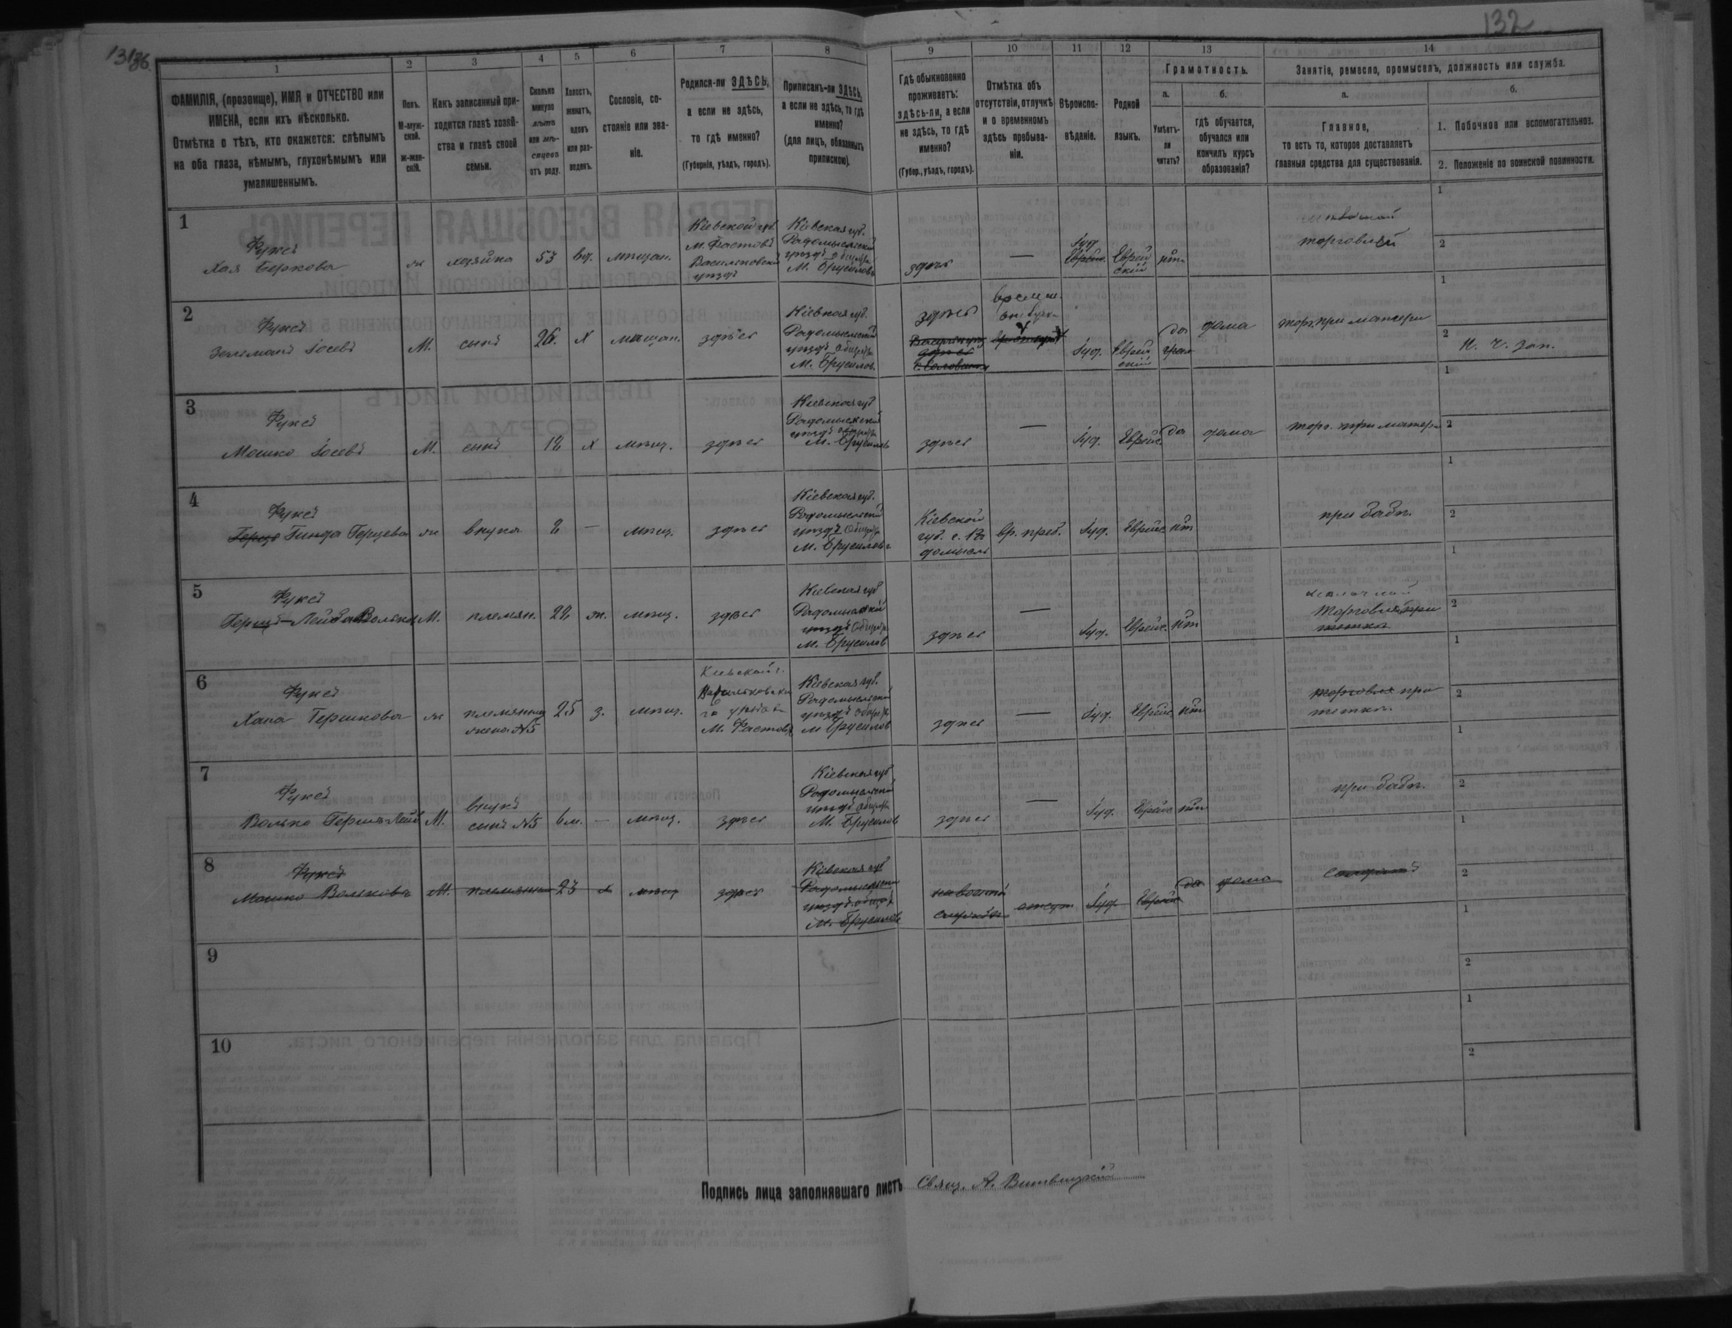 132
1
2
3
4
5
6
7
8
9
10
11
12
13
14
ФАМИЛІЯ, (прозвище), ИМЯ и ОТЧЕСТВО или
ИМЕНА, если ихъ нѣсколько.
Отмѣтка о тѣхъ, кто окажется: слѣпымъ
на оба глаза, нѣмымъ, глухонѣмымъ или
умалишеннымъ.
Полъ.
М-муж-
ской.
ж-жен-
скій.
Какъ записанный при-
ходится главѣ хозяй-
ства и главѣ своей
семьи.
Сколько
минуло
лѣтъ
или мѣ-
сяцевъ
отъ роду.
Холостъ,
женатъ,
вдовъ
или раз-
веденъ.
Сословіе, со-
стояніе или зва-
ніе.
Родился-ли ЗДѢСЬ,
а если не здѣсь,
то гдѣ именно?
(Губернія, уѣздъ, городъ).
Приписанъ-ли ЗДѢСЬ,
а если не здѣсь, то гдѣ
именно?
(для лицъ, обязанныхъ
припискою).
Гдѣ обыкновенно
проживаетъ:
здѣсь-ли, а если
не здѣсь, то гдѣ
именно?
(Губер., уѣздъ, городъ).
Отмѣтка объ
отсутствіи, отлучкѣ
и о временномъ
здѣсь пребыва-
ніи.
Вѣроиспо-
вѣданіе.
Родной
языкъ.
Грамотность.
а.
Умѣетъ-
ли
читать?
б.
гдѣ обучается,
обучался или
кончилъ курсъ
образованія?
Занятіе, ремесло, промыселъ, должность или служба.
а.
Главное,
то есть то, которое доставляетъ
главныя средства для существованія.
б.
1. Побочное или вспомогательное.
2. Положеніе по воинской повинности.
1
Фуксъ
Хая Беркова
ж
хозяйка
53
вд.
мѣщан.
Кіевской губ.
м. Фастовъ
Васильковской
уѣздъ
Кіевская губ.
Радомысльскій
уѣздъ общеж.
м. Брусиловъ
здѣсь
—
Іуд.
Еврей
ской
нѣт
торговлей
1
2
2
Фуксъ
Зельманъ Іосевъ
М.
сынъ
26
х
мѣщан.
здѣсь
Кіевская губ.
Радомысльскій
уѣздъ общеж.
м. Брусилов.
здѣсь
Іуд.
Еврей
ской
да
дома
торг. при матери
1
2
н. ч. зап.
3
Фуксъ
Мошко Іосевъ
М.
сынъ
18
х
мѣщ.
здѣсь
Кіевская губ.
Радомысльскій
уѣздъ общеж.
м. Брусиловъ
здѣсь
—
Іуд.
Еврейс.
да
дома
торг. при матери
1
2
4
Фуксъ
Гинда Герцева
ж
внука
2
—
мѣщ.
здѣсь
Кіевская губ.
Радомысльскій
уѣздъ общеж.
м. Брусиловъ
Кіевской
губ. г. Ра
домысль
вр. преб.
Іуд.
Еврейс.
нѣт
при бабк.
1
2
5
Фуксъ
Гершъ-Лейба Вольков
М.
племян.
22
ж.
мѣщ.
здѣсь
Кіевская губ
Радомысльскій
уѣздъ общеж.
м. Брусилов
здѣсь
—
Іуд.
Еврейс.
нѣт
торговля при
тетки
1
2
6
Фуксъ
Хана Гершкова
ж
племянница
жена №5
25
з.
мѣщ.
Кіевской г.
Васильковска
го уѣзда
м. Фастовъ
Кіевская губ.
Радомысльскій
уѣздъ общеж.
м Брусилов
здѣсь
—
Іуд.
Еврейс
нѣт
торговля при
тетки
1
2
7
Фуксъ
Волько Гершъ Лейб
М.
внукъ
сынъ №5
6 м.
—
мѣщ.
здѣсь
Кіевская губ
Радомысльскій
уѣздъ общеж.
м. Брусилов
здѣсь
—
Іуд.
Еврейс
нѣт
при бабк.
1
2
8
Фуксъ
Мошко Вольковъ
М.
племянник
23
х
мѣщ
здѣсь
Кіевская губ
Радомысльскій
уѣздъ общеж.
м. Брусиловъ
отсут
Іуд
Еврейс
да
дома
1
2
9
1
2
10
1
2
Подпись лица заполнявшаго листъ Свящ. А. Витвицкій